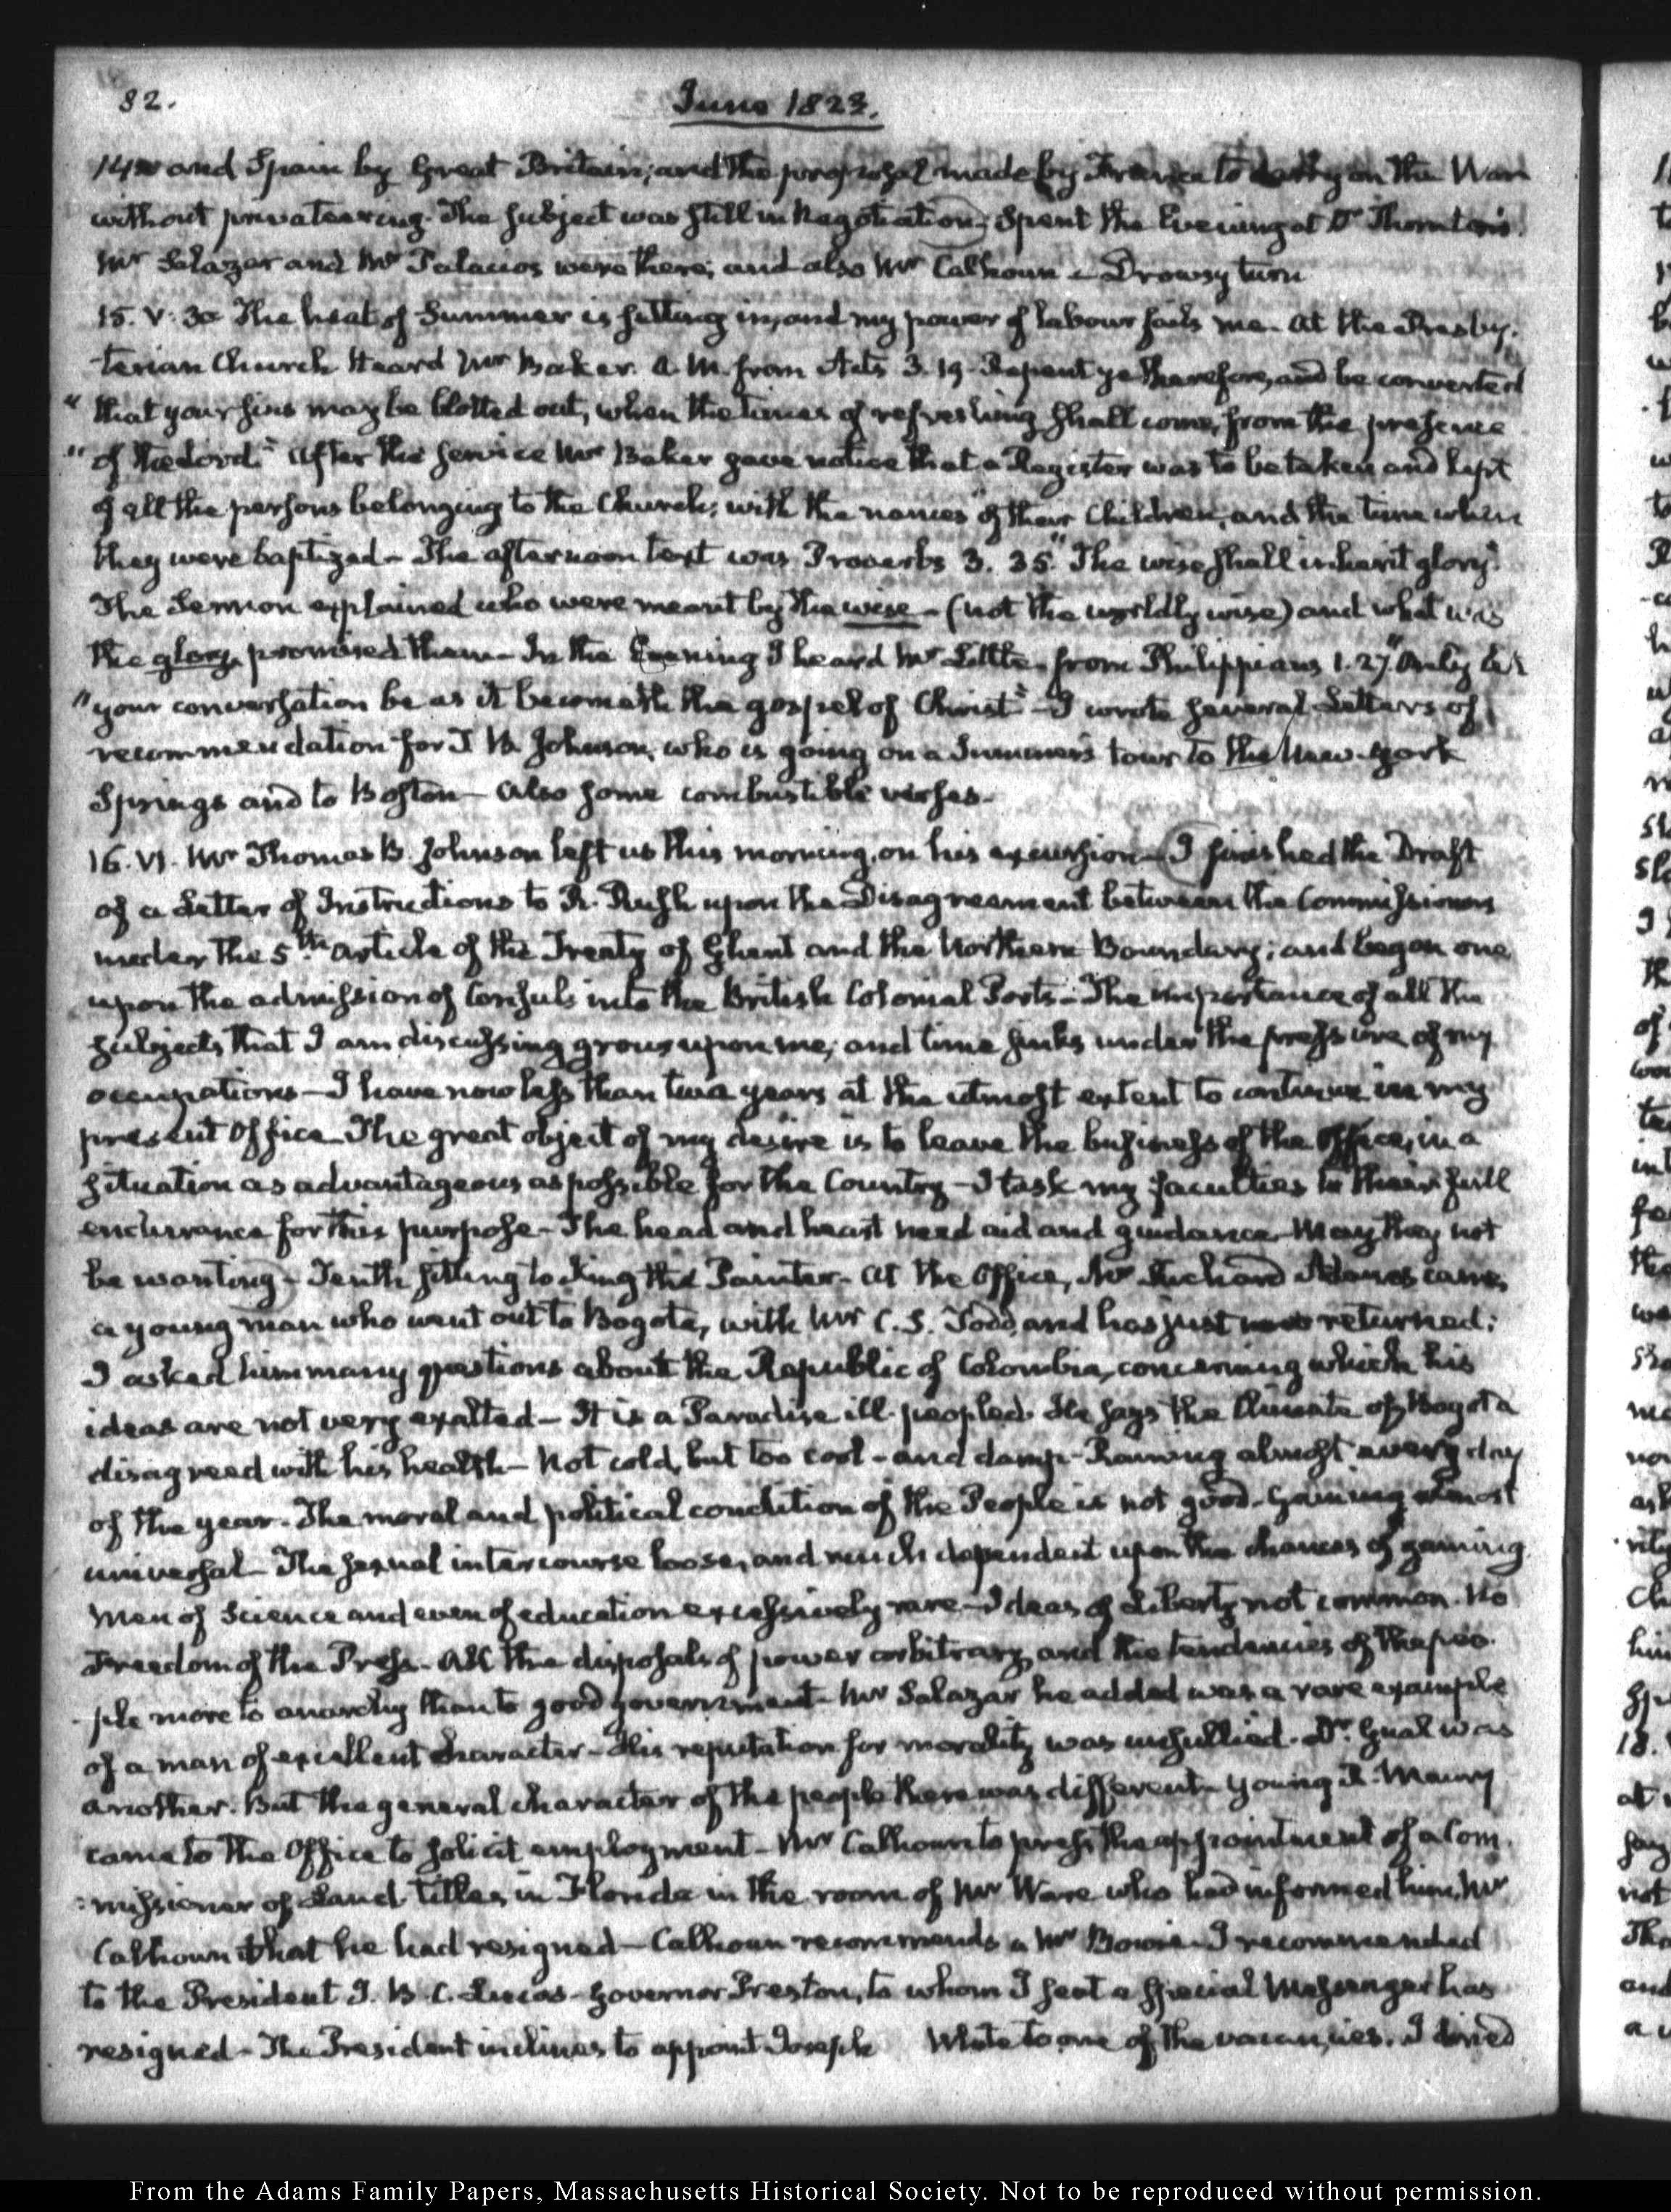 82.
June 1823.
14 and Spain by Great Britain; and the proposal made by France to carry on the War
without privateering. The subject was still in Negotiation. Spent the Evening at Dr Thornton's.
Mr Salazar and Mr Palacios were there; and also Mr Calhoun - Drowsy turn
15. V. 30 The heat of Summer is setting in, and my power of labour fails me. At the Presby-
-terian Church Heard Mr Baker. A.M. from Acts 3. 19. Repent ye therefore, and be converted
" that your sins may be blotted out, when the times of refreshing shall come, from the presence
" of the Lord." After the service Mr Baker gave notice that a Register was to be taken and kept
of all the persons belonging to the Church; with the names of their Children, and the time when
they were baptized - The afternoon text was Proverbs 3. 35. "The wise shall inherit glory."
The Sermon explained who were meant by the wise - (not the worldly wise) and what was
the glory promised them - In the Evening I heard Mr Little from Philippians 1. 27. "Only let
" your conversation be as it becometh the gospel of Christ" - I wrote several Letters of
recommendation for T. B. Johnson, who is going on a Summer's tour to the New-York
Springs and to Boston - Also some combustible verses.
16. VI. Mr Thomas B. Johnson left us this morning, on his excursion - I finished the Draft
of a Letter of Instructions to R. Rush upon the Disagreement between the Commissioners
under the 5th. Article of the Treaty of Ghent and the Northern Boundary; and began one
upon the admission of Consuls into the British Colonial Ports - The importance of all the
subjects that I am discussing grows upon me, and time sinks under the pressure of my
occupations - I have now less than two years at the utmost extent to continue in my
present Office. The great object of my desire is to leave the business of the Office, in a
situation as advantageous as possible for the Country - I task my faculties to their full
endurance for this purpose - The head and heart need aid and guidance - May they not
be wanting - Tenth sitting to King the Painter - At the Office, Mr Richard Adams came,
a young man who went out to Bogota, with Mr C. S. Todd, and has just returned:
I asked him many questions about the Republic of Colombia, concerning which his
ideas are not very exalted - It is a Paradise ill-peopled. He says the Climate of Bogota
disagreed with his health - Not cold, but too cool - and damp - Raining almost every day
of the year. The moral and political condition of the People is not good - Gaming almost
universal - The sexual intercourse loose, and much dependent upon the chances of gaming
Men of Science and even of education excessively rare - Ideas of Liberty not common. No
Freedom of the Press - All the disposals of power arbitrary, and the tendencies of the peo-
-ple more to anarchy than to good government - Mr Salazar he added was a rare example
of a man of excellent character - His reputation for morality was unsullied. Dr. Gual was
another. But the general character of the people there was different - Young R. Maury
came to the Office to solicit employment - Mr Calhoun to press the appointment of a Com-
:missioner of Land titles in Florida in the room of Mr Ware who had informed him, Mr
Calhoun that he had resigned - Calhoun recommends a Mr Bowie - I recommended
to the President J. B. C. Lucas - Governor Preston, to whom I sent a special Messenger has
resigned - The President inclines to appoint Joseph White to one of the vacancies. I dined
From the Adams Family Papers, Massachusetts Historical Society. Not to be reproduced without permission.